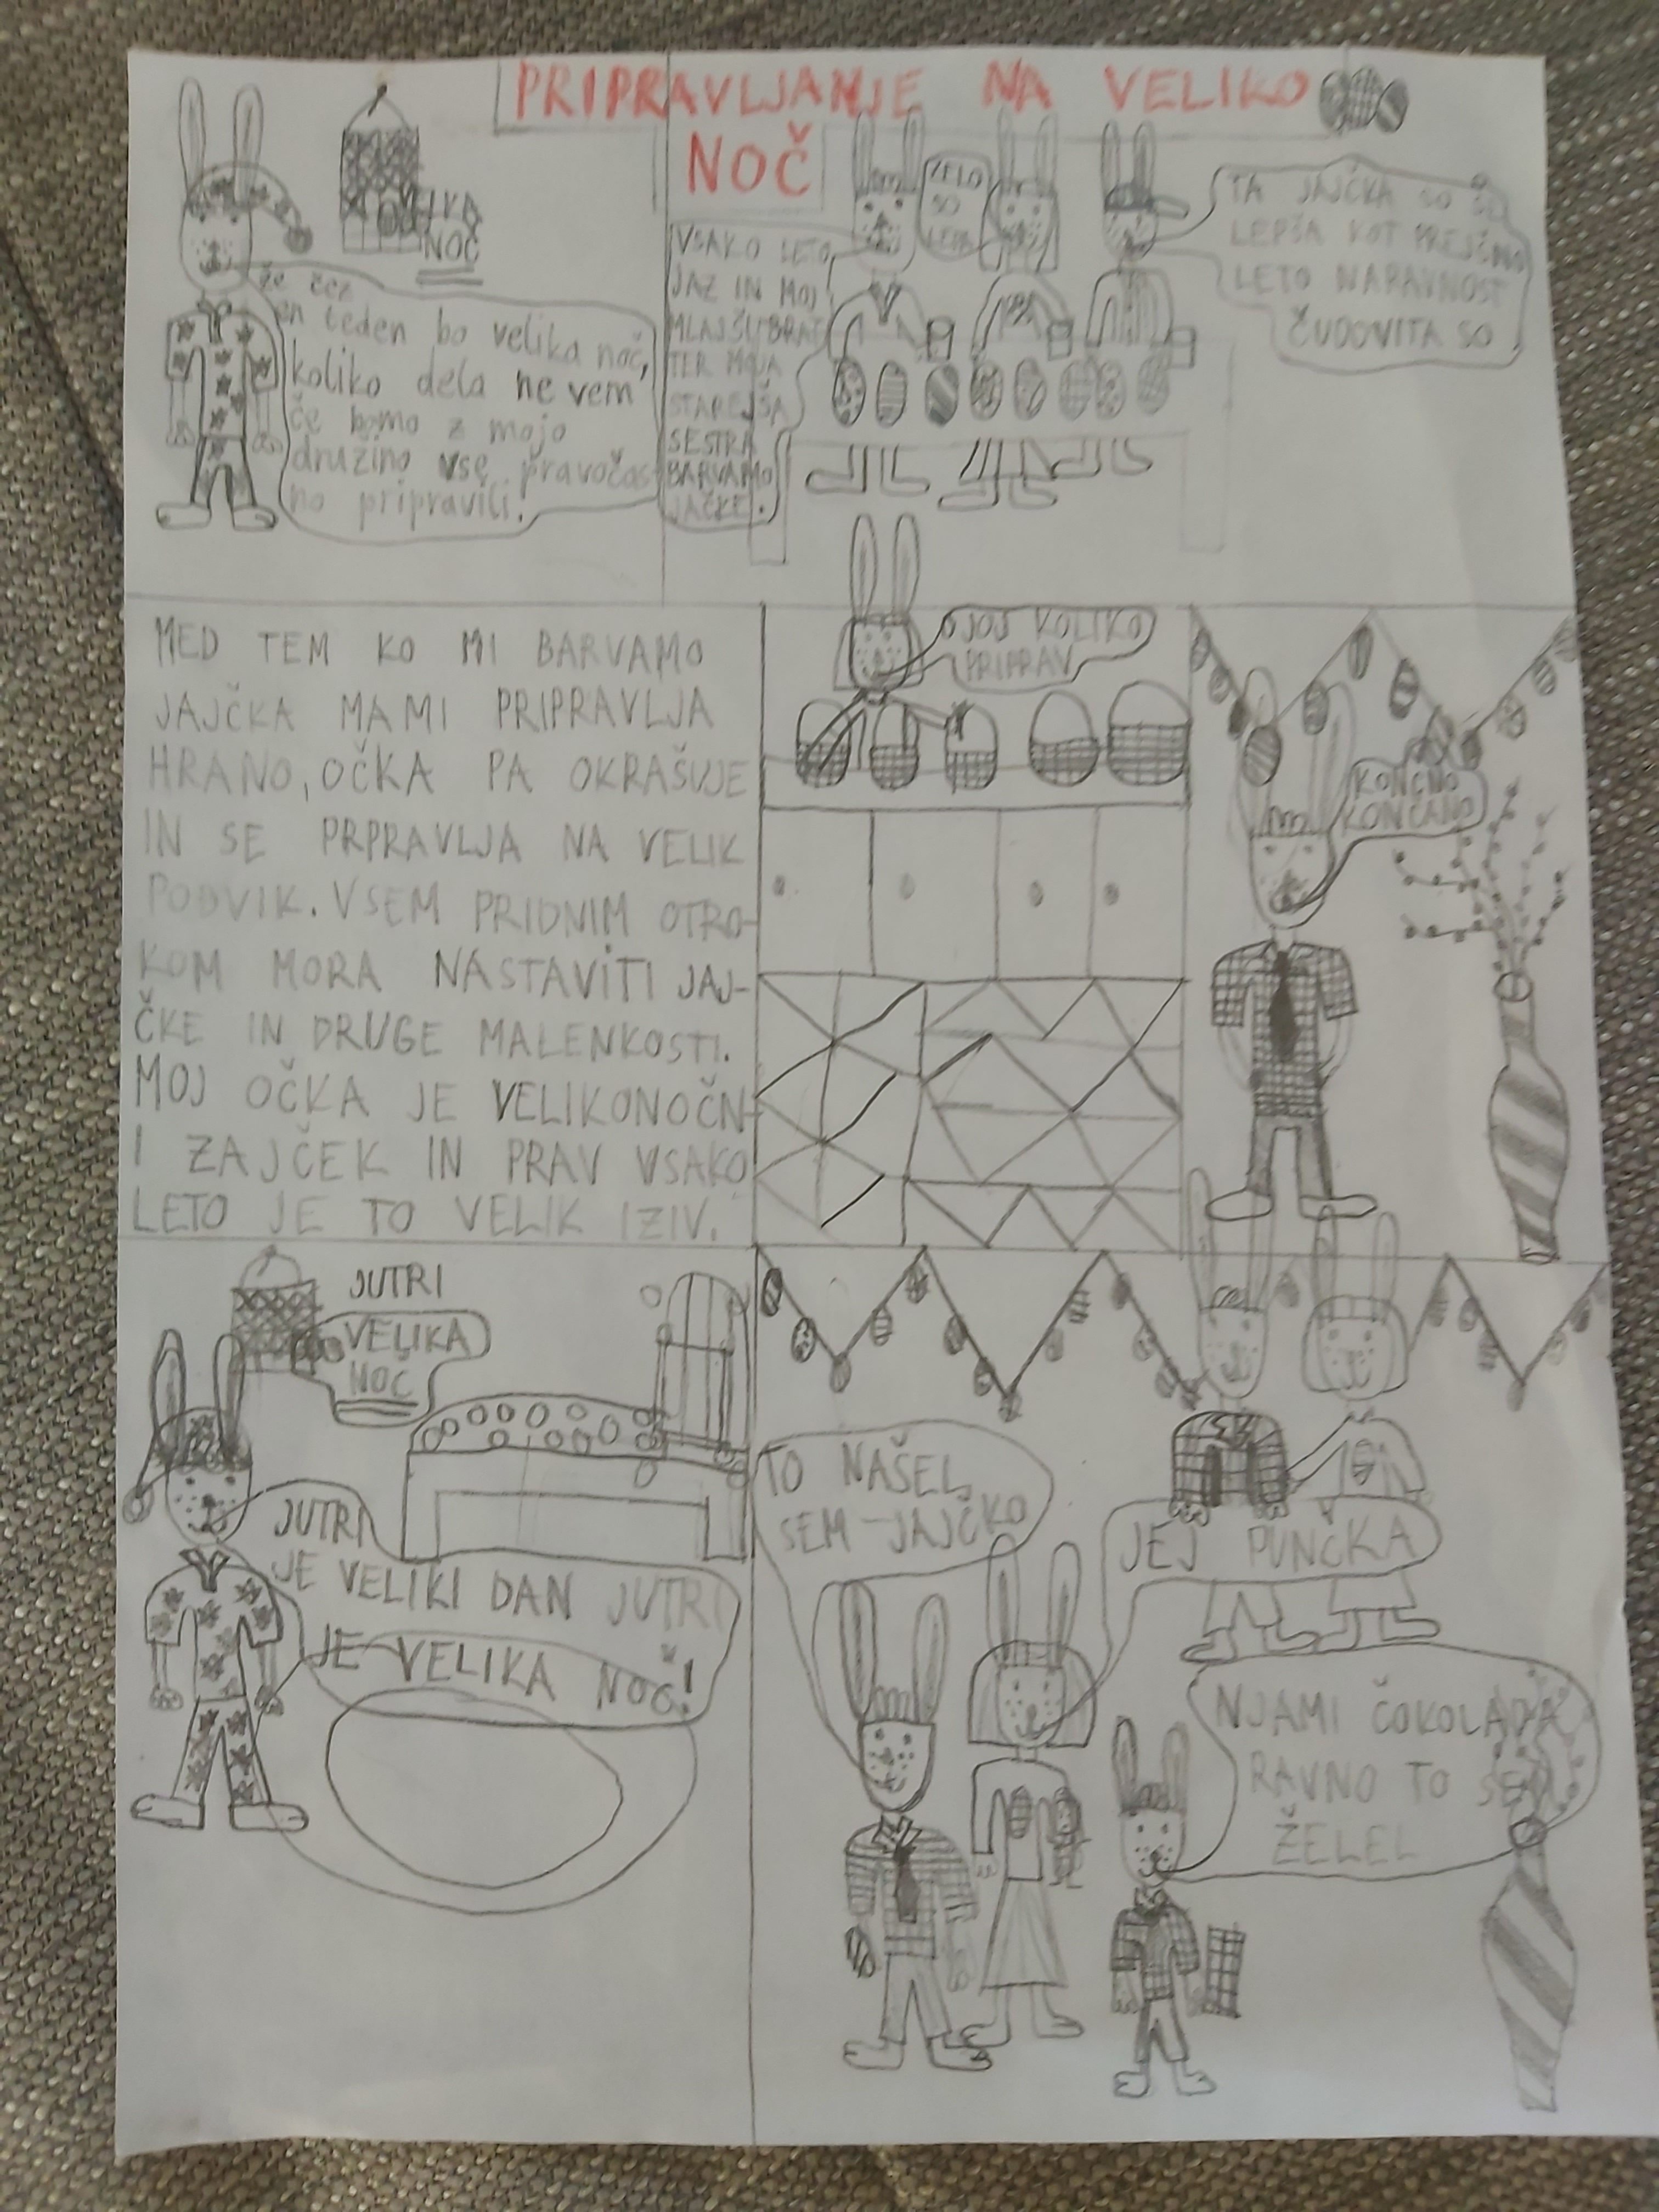 PRIPRAVLJANJE NA VELIKO
NOČ
NOČ
že čez
en teden bo velika noč,
koliko dela ne vem
če bomo z mojo
družino vse pravočas
no pripravili!
VSAKO LETO
JAZ IN MOJ
MLAJŠI BRAT
TER MOJA
STAREJŠA
SESTRA
BARVAMO
JAČKE.
ZELO
SO
LEPA
TA JAJČKA SO ŠE
LEPŠA KOT PREJŠNO
LETO NARAVNOST
ČUDOVITA SO
MED TEM KO MI BARVAMO
JAJČKA MAMI PRIPRAVLJA
HRANO, OČKA PA OKRAŠUJE
IN SE PRPRAVLJA NA VELIK
PODVIK. VSEM PRIDNIM OTRO-
KOM MORA NASTAVITI JAJ-
ČKE IN DRUGE MALENKOSTI.
MOJ OČKA JE VELIKONOČN-
I ZAJČEK IN PRAV VSAKO
LETO JE TO VELIK IZIV.
OJOJ KOLIKO
PRIPRAV
KONČNO
KONČANO
JUTRI
VELIKA
NOČ
JUTRI
JE VELIKI DAN JUTRI
JE VELIKA NOČ!
TO NAŠEL
SEM JAJČKO
JEJ PUNČKA
NJAMI ČOKOLADA
RAVNO TO SEM
ŽELEL